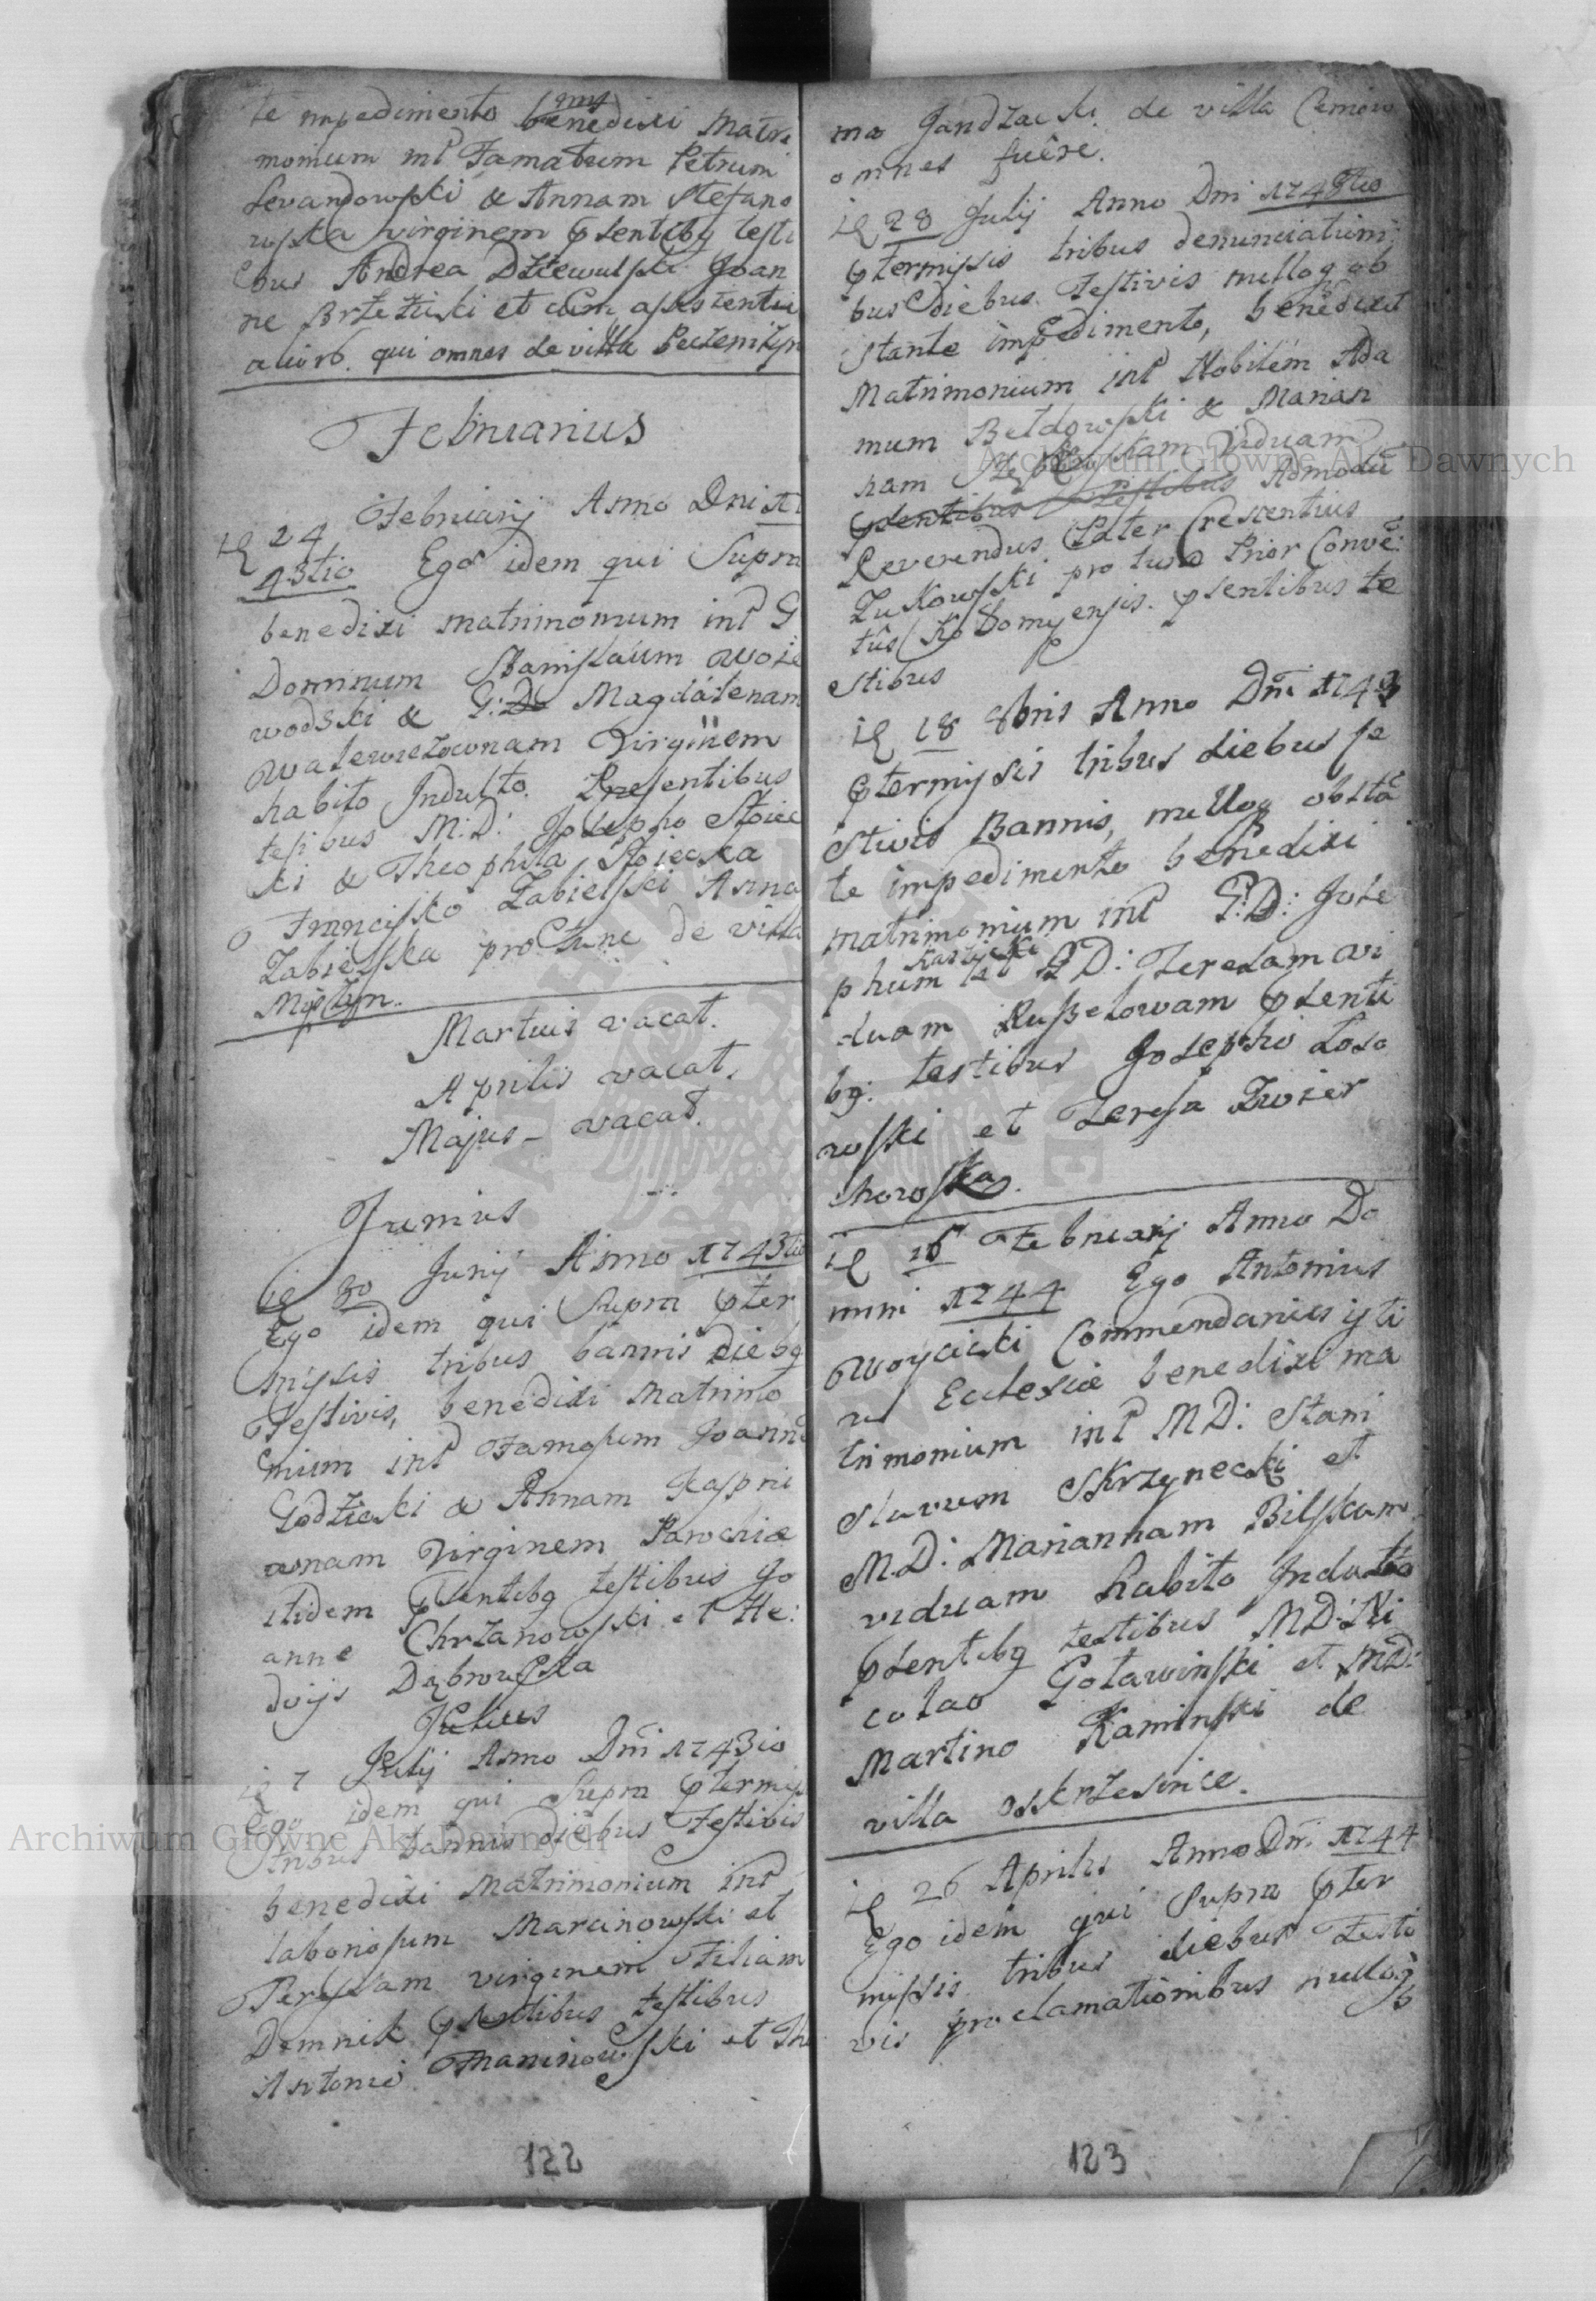 te impedimento benedixi Matri
monium int Famatum Petrum
Levandowski & Annam Stefano
wska virginem psentibg testi
bus Andrea Dziewulski Joan
ne Brzeziski et cum assistentia
aliorб. qui omnes de villa Peczenizyn
Februarius
24 Februarij Anno Dni 17
43tio Ego idem qui Supra
benedixi matrimonium int G
Dominum Stanislaum Woie
wodski & G: Magdalenam
Walewiczownam Virginem
habito Indulto. Presentibus
tesibus M: D: Josepho Stoiec
ki & Theophila Stoiecka
Francisko Zabielski Anna
Zabielska pro tunc de villa
Miszyn.
Martius vacat.
Aprilis vacat.
Majus - vacat.
Junius
30 Junij Anno 1743tio
Ego idem qui Supra pter
missis tribus bannis diebg
Festivis, benedixi Matrimo
nium int Famosum Joanne
Godzicki & Annam Kaspri
wnam Virginem Parochiæ
itidem psentibg testibus Jo
anne Chrzanowski et He:
dvijs Dąbrowska
Julius
7 Julij Anno Dni 1743io
Ego idem qui Supra ptermis
tribus bannis diebus Festivis
benedixi Matrimonium int
laboriosum Marcinowski et
Teressam virginem Filiam
Domnik psentibus testibus
Antonio Maninowski et Tho
122
ma Jandzacki de villa
omnes fuêre.
28 Julij Anno Dni 1743tio
ptermissis tribus denunciationi
bus diebus Festivis nulloq ob
stante impedimento, benedixit
Matrimonium int Nobilem Ada
mum Beldowski & Marian
nam Viduam
psentibus testibus Admodū
Reverendus Pater Crescentius
Zukowski pro tunc Prior Conve:
tûs Kolomyensis. psentibus te
stibus
18 8bris Anno Dni 1743
ptermissis tribus diebus fe
stivis Bannis, nulloq obstā
te impedimento benedixi
matrimonium int G:D: Jose
phum et G D: Teresam vi
duam Russelowam psenti
bg: testibus Josepho Loso
wski et Teresa Zwier
chowska.
16 Februarij Anno Do
mini 1744 Ego Antonius
Woycicki Commendarius isti
us Ecclesiæ benedixi ma
trimonium int M D: Stani
slavum Skrzynecki et
M.D: Mariannam Bilskam
viduam habito Indulto
psentibg testibus MD: Ni
colao Golawinski et MD:
Martino Kaminski de
villa Oskrzesince.
26 Aprilis Anno Dni 1744
Ego idem qui Supra pter
missis tribus diebus Festi
vis proclamationibus nulloq
123
Archiwum Główne Akt Dawnych
Archiwum Główne Akt Dawnych